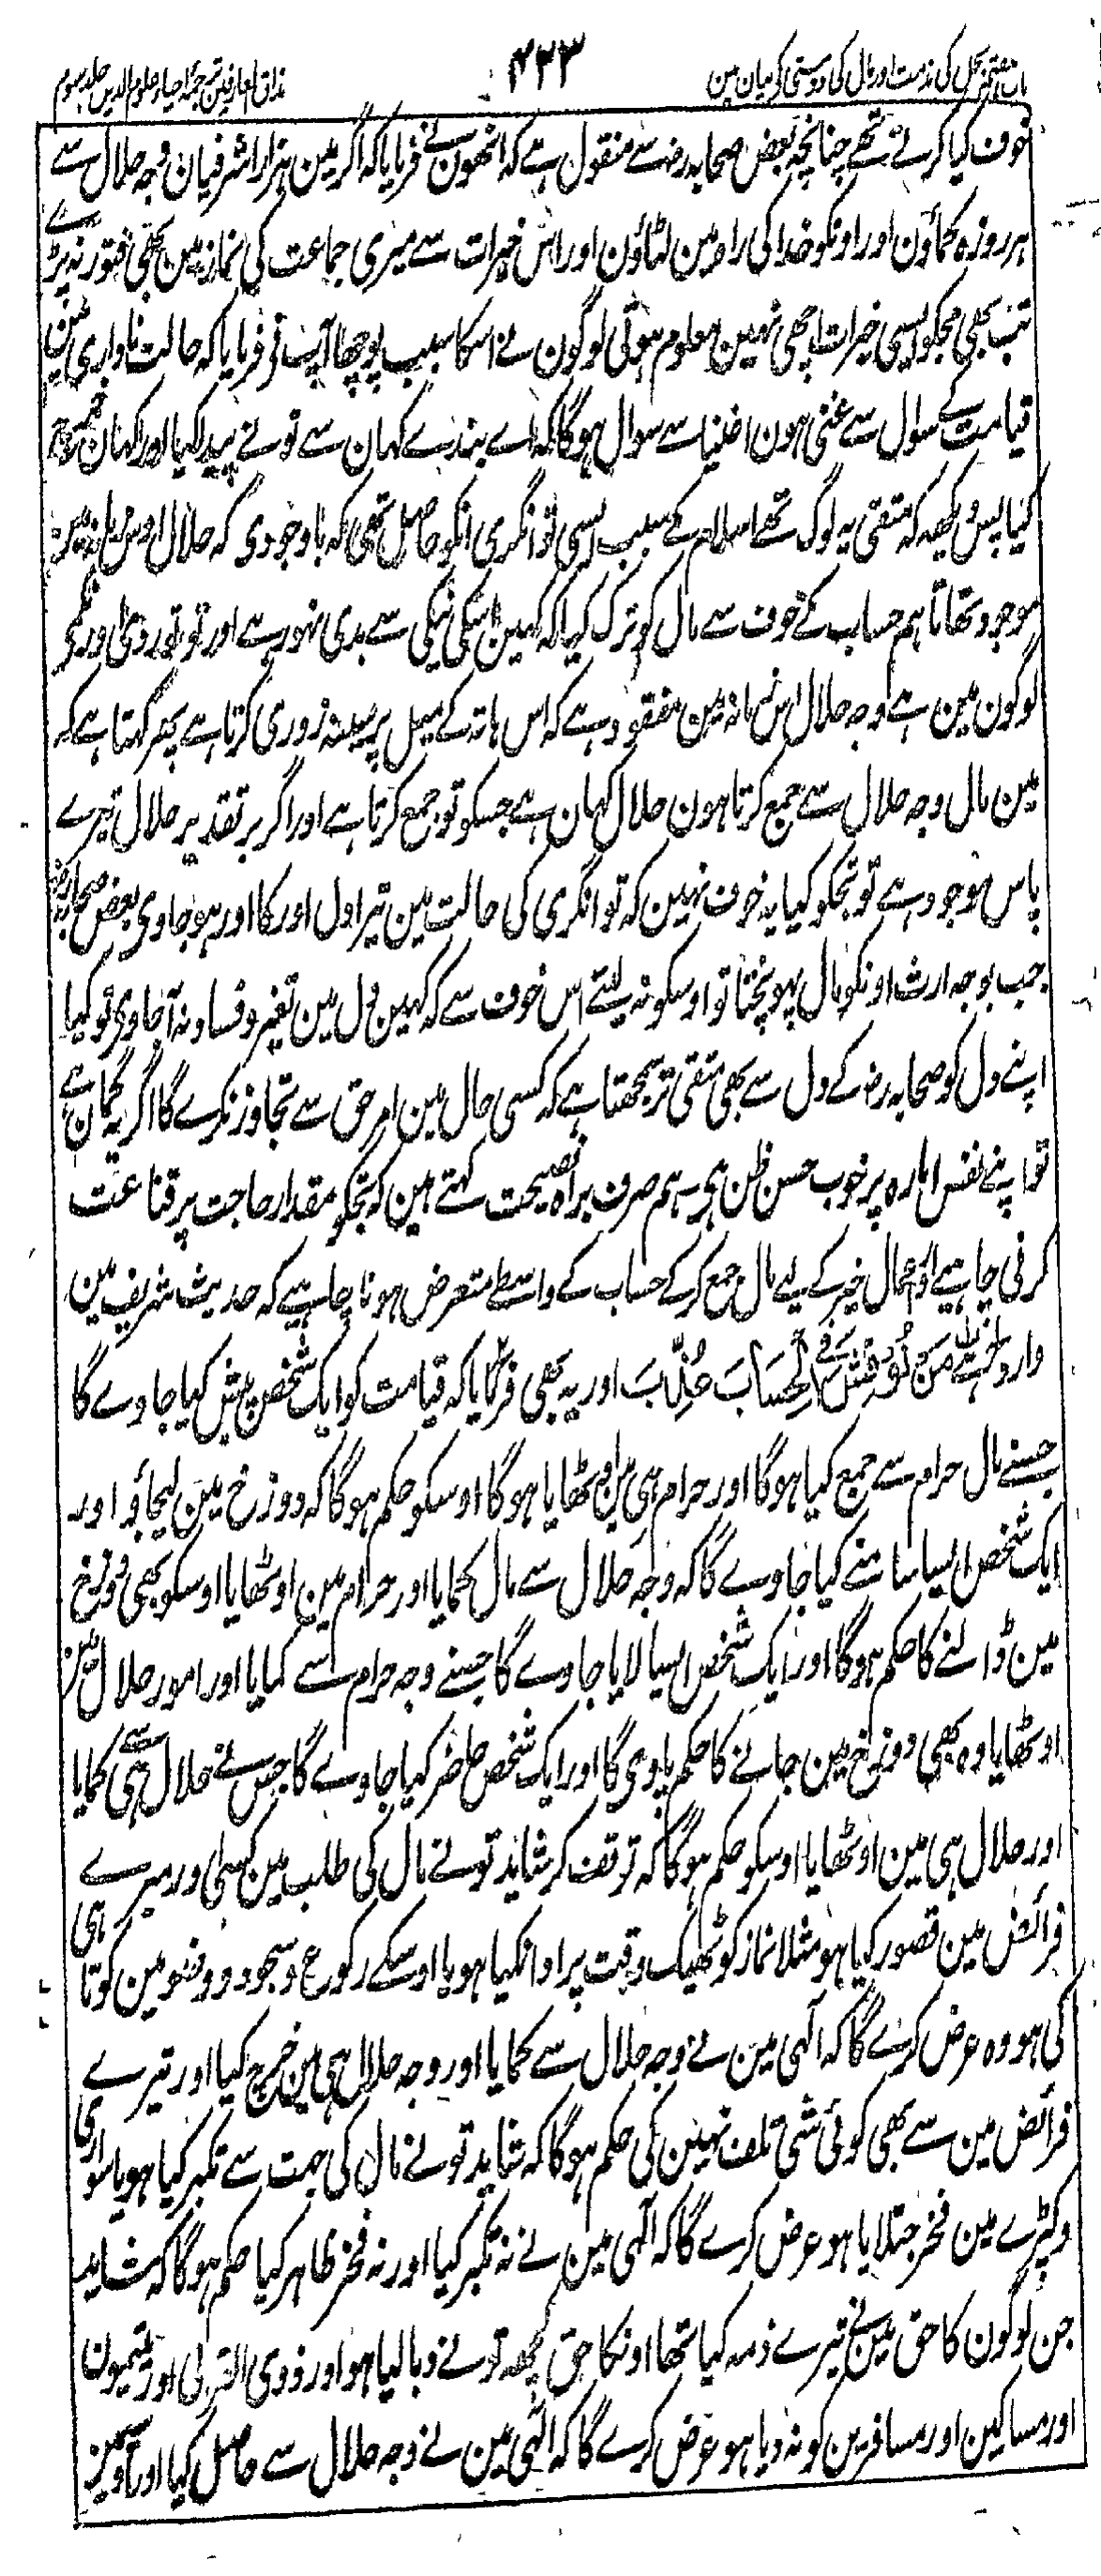 باب ہفتم بخل کی مذمت اور مال کی دوستی کے بیان مین
۴۲۳
مذاق العارفین ترجمۂ احیاء علوم الدین جلد سوم
خوف کیا کرتے تھے چنانچہ بعض صحابہ رضہ سے منقول ہے کہ انھون نے فرمایا کہ اگر مین ہزار اشرفیان وجہ حلال سے
ہر روزہ کماؤن اور اونکو خدا کی راہ مین لٹاؤن اور اس خیرات سے میری جماعت کی نماز مین بھی فتور نہ پڑے
تب بھی مجکو ایسی خیرات اچھی نہین معلوم ہوتی لوگون نے اسکا سبب پوچھا آپ نے فرمایا کہ حالت ناداری مین
قیامت کے سوال سے غنی ہون اغنیا سے سوال ہوگا کہ اے بندے کہان سے تونے پیدا کیا اور کہان خرچ
کیا پس دیکھہ کہ متقی یہ لوگ تھے اسلام کے سبب ایسی توانگری انکو حاصل تھی کہ باوجودی کہ حلال اوس زمانہ مین
موجود تھا تاہم حساب کے خوف سے مال کو ترک کیا کہ کہین اسکی نیکی سے بدی نہو رہے اور تو تو ردی اور نکمے
لوگون مین ہے وجہ حلال اس زمانہ مین مفقود ہے کہ اس ہاتہ کے میل پر سینہ زوری کرتا ہے پھر کہتا ہے کہ
مین مال وجہ حلال سے جمع کرتا ہون حلال کہان ہے جسکو تو جمع کرتا ہے اور اگر بر تقدیر حلال تیرے
پاس موجود ہے تو تجکو کیا یہ خوف نہین کہ توانگری کی حالت مین تیرا دل اور کا اور ہو جاوی بعض صحابہ رضہ
جب بوجہ ارث اونکو مال پہونچتا تو اوسکو نہ لیتے اس خوف سے کہ کہین دل مین تغیر و فساد نہ آجاوی تو کیا
اپنے دل کو صحابہ رضہ کے دل سے بھی متقی تر سمجھتا ہے کہ کسی حال مین امر حق سے تجاوز نکرے گا اگر یہ گمان ہے
تو اپنے نفس امارہ پر خوب حسن ظن ہی ہم صرف براہ نصیحت کہتے ہین کہ تجکو مقدار حاجت پر قناعت
کرنی چاہیے اور اعمال خیر کے لیے مال جمع کرکے حساب کے واسطے متعرض نہونا چاہیے کہ حدیث شریف مین
وارد ہے مَنْ نُوقِشَ فِی الْحِسَابَ عُذِّبَ اور یہ بھی فرمایا کہ قیامت کو ایک شخص پیش کیا جاوے گا
جسنے مال حرام سے جمع کیا ہوگا اور حرام ہی مین اوٹھایا ہوگا اوسکو حکم ہوگا کہ دوزخ مین لیجاؤ اور
ایک شخص ایسا سامنے کیا جاوے گا کہ وجہ حلال سے مال کمایا اور حرام مین اوٹھایا اوسکو بھی دوزخ
مین ڈالنے کا حکم ہوگا اور ایک شخص ایسا لایا جاوے گا جسنے وجہ حرام سے کمایا اور امور حلال مین
اوٹھایا وہ بھی دوزخ مین جانے کا حکم پاوی گا اور ایک شخص حاضر کیا جاوے گا جس نے حلال ہی سے کمایا
اور حلال ہی مین اوٹھایا اوسکو حکم ہوگا کہ توقف کر شاید تونے مال کی طلب مین کسی اور میرے
فرائض مین قصور کیا ہو مثلا نماز کو ٹھیک وقت پر ادا نکیا ہو یا اوسکے رکوع و سجود و وضو مین کوتاہی
کی ہو وہ عرض کرے گا کہ الٰہی مین نے وجہ حلال سے کمایا اور وجہ حلال ہی مین خرچ کیا اور تیرے
فرائض مین سے بھی کوئی شی تلف نہین کی حکم ہوگا کہ شاید تونے مال کی جہت سے تکبر کیا ہو یا سواری
و کپڑے مین فخر جتلایا ہو عرض کرے گا کہ الٰہی مین نے نہ تکبر کیا اور نہ فخر ظاہر کیا حکم ہوگا کہ شاید
جن لوگون کا حق مین نے تیرے ذمہ کیا تھا اونکا حق کچھہ تونے دبا لیا ہو اور ذوی القربی اور یتیمون
اور مساکین اور مسافرین کو نہ دیا ہو عرض کرے گا کہ الٰہی مین نے وجہ حلال سے حاصل کیا اور اوسمین